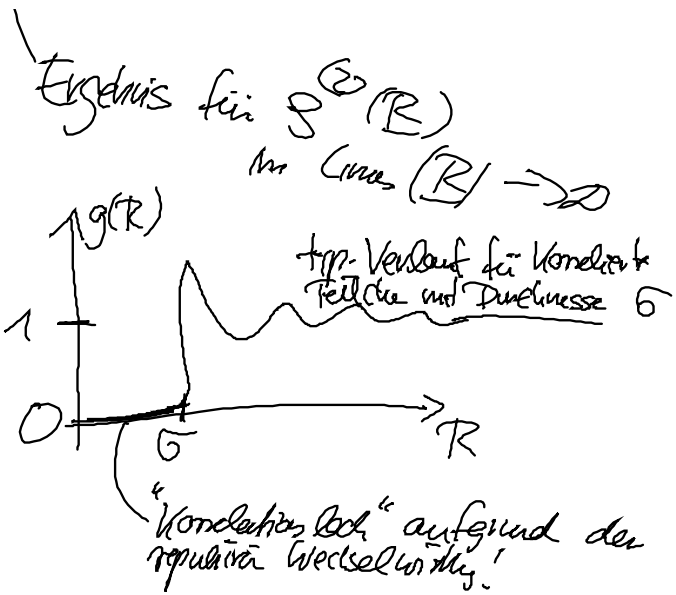 Ergebnis für ρ⁽²⁾(R)
im Limes |R| → ∞
g(R)
typ. Verlauf für korrelierte
Teilchen mit Durchmesser σ
1
0
σ
R
"Korrelationsloch" aufgrund der
repulsiven Wechselwirkung!